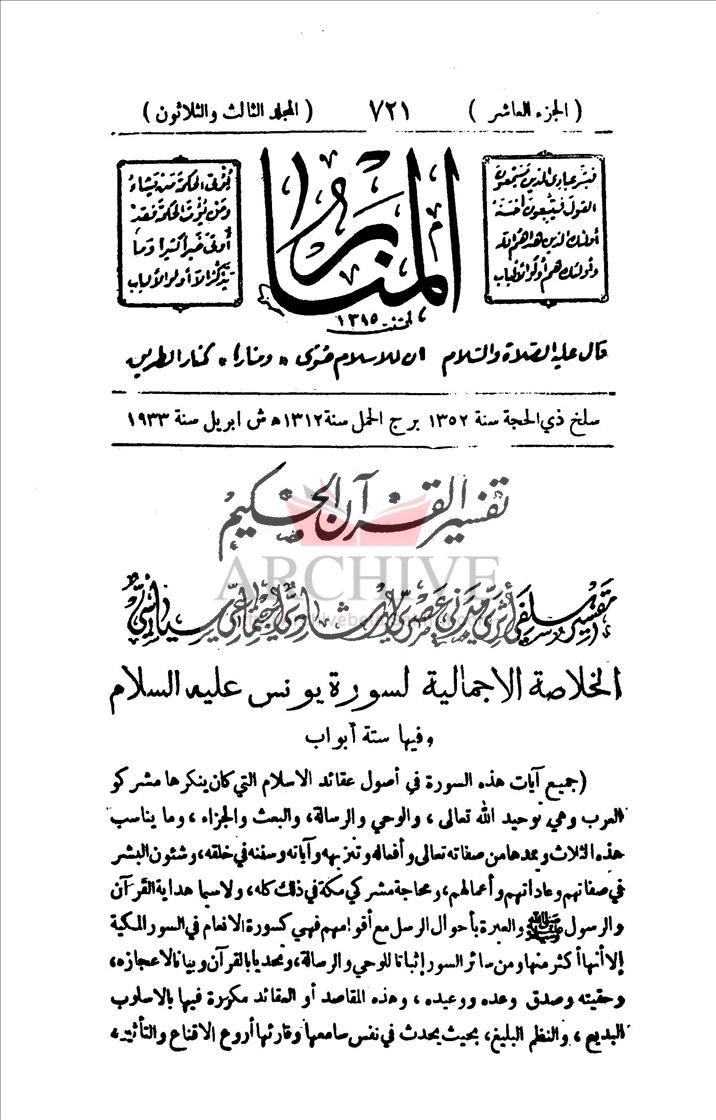 ( الجزء العاشر ) ٧٢١ ( المجلد الثالث والثلاثون )
فبشر عبادي الذين يستمعون
القول فيتبعون أحسنه
أولئك الذين هداهم الله
وأولئك هم أولو الألباب
المنار
١٣١٥
يؤتي الحكمة من يشاء
ومن يؤت الحكمة فقد
أوتي خيرا كثيرا وما
يذكر إلا أولو الألباب
قال عليه الصلاة والسلام ان للاسلام صوى « ومنارا » كمنار الطريق
سلخ ذي الحجة سنة ١٣٥٢ برج الحمل سنة ١٣١٢ ه‍ ش ابريل سنة ١٩٣٣
تفسير القرآن الحكيم
ARCHIVE
تفسير سلفي أثري مدني عصري إرشادي اجتماعي سياسي
الخلاصة الاجمالية لسورة يونس عليه السلام
وفيها ستة أبواب
(جميع آيات هذه السورة في أصول عقائد الاسلام التي كان ينكرها مشركو
العرب وهي توحيد الله تعالى ، والوحي والرسالة، والبعث والجزاء ، وما يناسب
هذه الثلاث ويمدها من صفاته تعالى وأفعاله وتنزيهه وآياته وسننه في خلقه، وشئون البشر
في صفاتهم وعاداتهم وأعمالهم، ومحاجة مشركي مكة في ذلك كله، ولا سيما هداية القرآن
والرسول ﷺ والعبرة بأحوال الرسل مع أقوامهم فهي كسورة الانعام في السور المكية
إلا أنها أكثر منها ومن سائر السور إثباتا للوحي والرسالة، وتحديا بالقرآن وبيانا لاعجازه،
وحقيته وصدق وعده ووعيده ، وهذه المقاصد أو العقائد مكررة فيها بالاسلوب
البديع ، والنظم البليغ، بحيث يحدث في نفس سامعها وقارئها أروع الاقناع والتأثير،